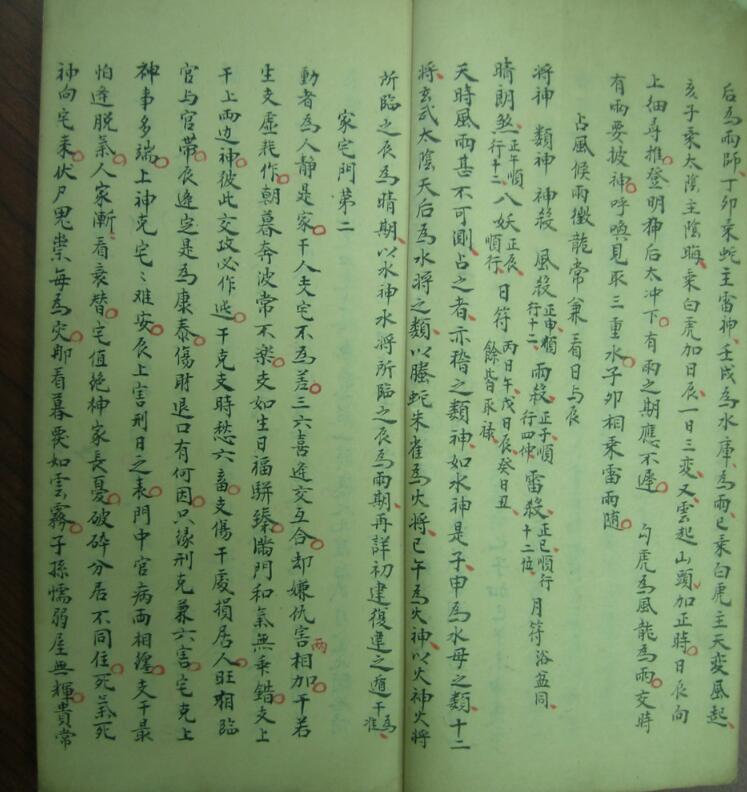 后為雨師丁卯乘蛇主雷神壬戌為水庫為雨巳乘白虎主天變風起
亥子乘太陰主陰晦乘白虎加日辰一日三變又雲起山頭加正時日辰向
上細尋推登明神后太冲下有雨之期應不遲 勾虎為風龍為雨交時
有雨要披神呼喚見取三重水子卯相乘雷雨隨
占風候雨徵龍常兼看日与辰
將神 類神 神殺 風殺正申順行十二 雨殺正子順行四仲 雷殺正巳順行十二位 月符浴盆同
晴朗煞正午順行十二 八妖正辰順行 日符丙日午戊日辰癸日丑餘皆取祿
天時風雨甚不可測占之者亦稽之類神如水神是子申為水母之類十二
將玄武太陰天后為水將之類以螣蛇朱雀為火將巳午為火神以火神火將
所臨之辰為晴期以水神水將所臨之辰為雨期再詳初建復建之遁干為準
家宅門第二
動者為人靜是家干人支宅不為差三六喜逢交互合却嫌仇害兩相加干若
生支虛耗作朝暮奔波常不樂支如生日福駢臻滿門和氣無乖錯支上
干上兩边神彼此交攻必作迍干克支時愁六畜支傷干處損居人旺相臨
官与官帶辰逢定是為康泰傷財退口有何因只緣刑克兼六害宅克上
神事多端上神克宅宅难安辰上害刑日之表門中官病両相纏支干最
怕逢脫氣人家漸看衰替宅值絕神家長憂破碎分居不同住死氣死
神向宅来伏尸鬼祟每為灾那看暮裏如雲霧子孫懦弱屋無輝貴常